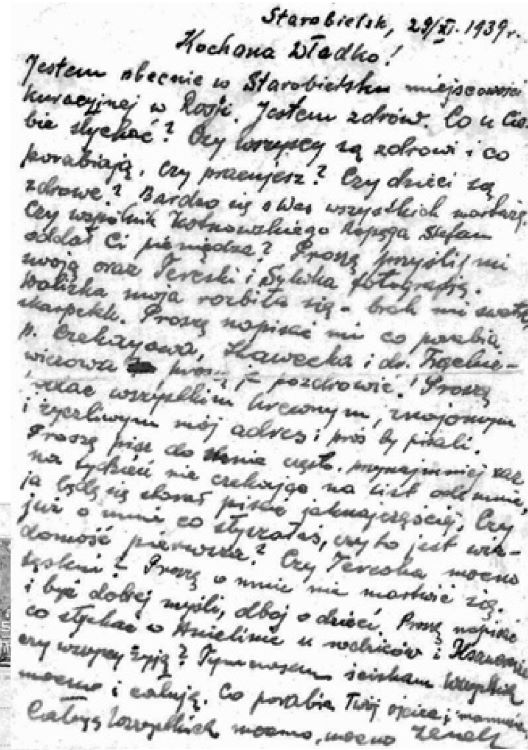 Starobielsk, 29/XI. 1939 r.
Kochana Władko!
Jestem obecnie w Starobielsku miejscowości
kuracyjnej w Rosji. Jestem zdrów. Co u Cie-
bie słychać? Czy wszyscy są zdrowi i co
porabiają, czy pracujesz? Czy dzieci są
zdrowe? Bardzo się o Was wszystkich martwię.
Czy wspólnik Stefan
oddał Ci pieniądze? Proszę przyślij mi
swoją oraz Tereski i fotografię.
Walizka moja rozbiła się - brak mi
skarpetek. Proszę napisać mi co porabia
p. Czekayowa, Sławecka i dr.
wiczowa proszę je pozdrowić! Proszę
wszystkim krewnym, znajomym
i życzliwym mój adres i proś by pisali.
Proszę pisz do mnie często, przynajmniej raz
na tydzień nie czekając na list ode mnie,
ja będę się starał pisać jaknajczęściej. Czy
już o mnie co słyszałaś, czy to jest wia-
domość pierwsza? Czy Tereska mocno
tęskni - Proszę o mnie nie martwić się.
i być dobrej myśli, dbaj o dzieci. Proszę napisać
co słychać w u rodziców i
czy wszyscy żyją? Tymczasem ściskam wszystkich
mocno i całuję. Co porabia Twój ojciec i mamusia
Całuję wszystkich mocno, mocno